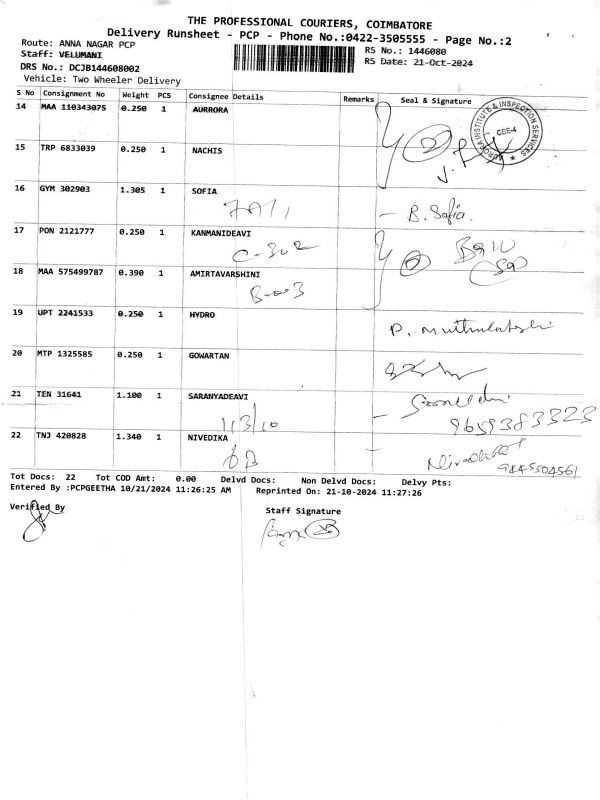 THE PROFESSIONAL COURIERS, COIMBATORE
Delivery Runsheet - PCP - Phone No.:0422-3505555 - Page No.:2
Route: ANNA NAGAR PCP
RS No.: 1446080
Staff: VELUMANI
RS Date: 21-Oct-2024
DRS No.: DCJB144608002
Vehicle: Two Wheeler Delivery
S No Consignment No Weight PCS Consignee Details Remarks Seal & Signature
14 MAA 110343075 0.250 1 AURRORA
AURORA INSTITUTE & INSPECTION SERVICES
CBE-4
15 TRP 6833039 0.250 1 NACHIS
16 GYM 302903 1.305 1 SOFIA
B. Sofia.
17 PON 2121777 0.250 1 KANMANIDEAVI
C-302
18 MAA 575499787 0.390 1 AMIRTAVARSHINI
19 UPT 2241533 0.250 1 HYDRO
20 MTP 1325585 0.250 1 GOWARTAN
21 TEN 31641 1.100 1 SARANYADEAVI
1/3/10
9659383323
22 TNJ 420828 1.340 1 NIVEDIKA
9445504561
Tot Docs: 22 Tot COD Amt: 0.00 Delvd Docs: Non Delvd Docs: Delvy Pts:
Entered By :PCPGEETHA 10/21/2024 11:26:25 AM Reprinted On: 21-10-2024 11:27:26
Verified By
Staff Signature